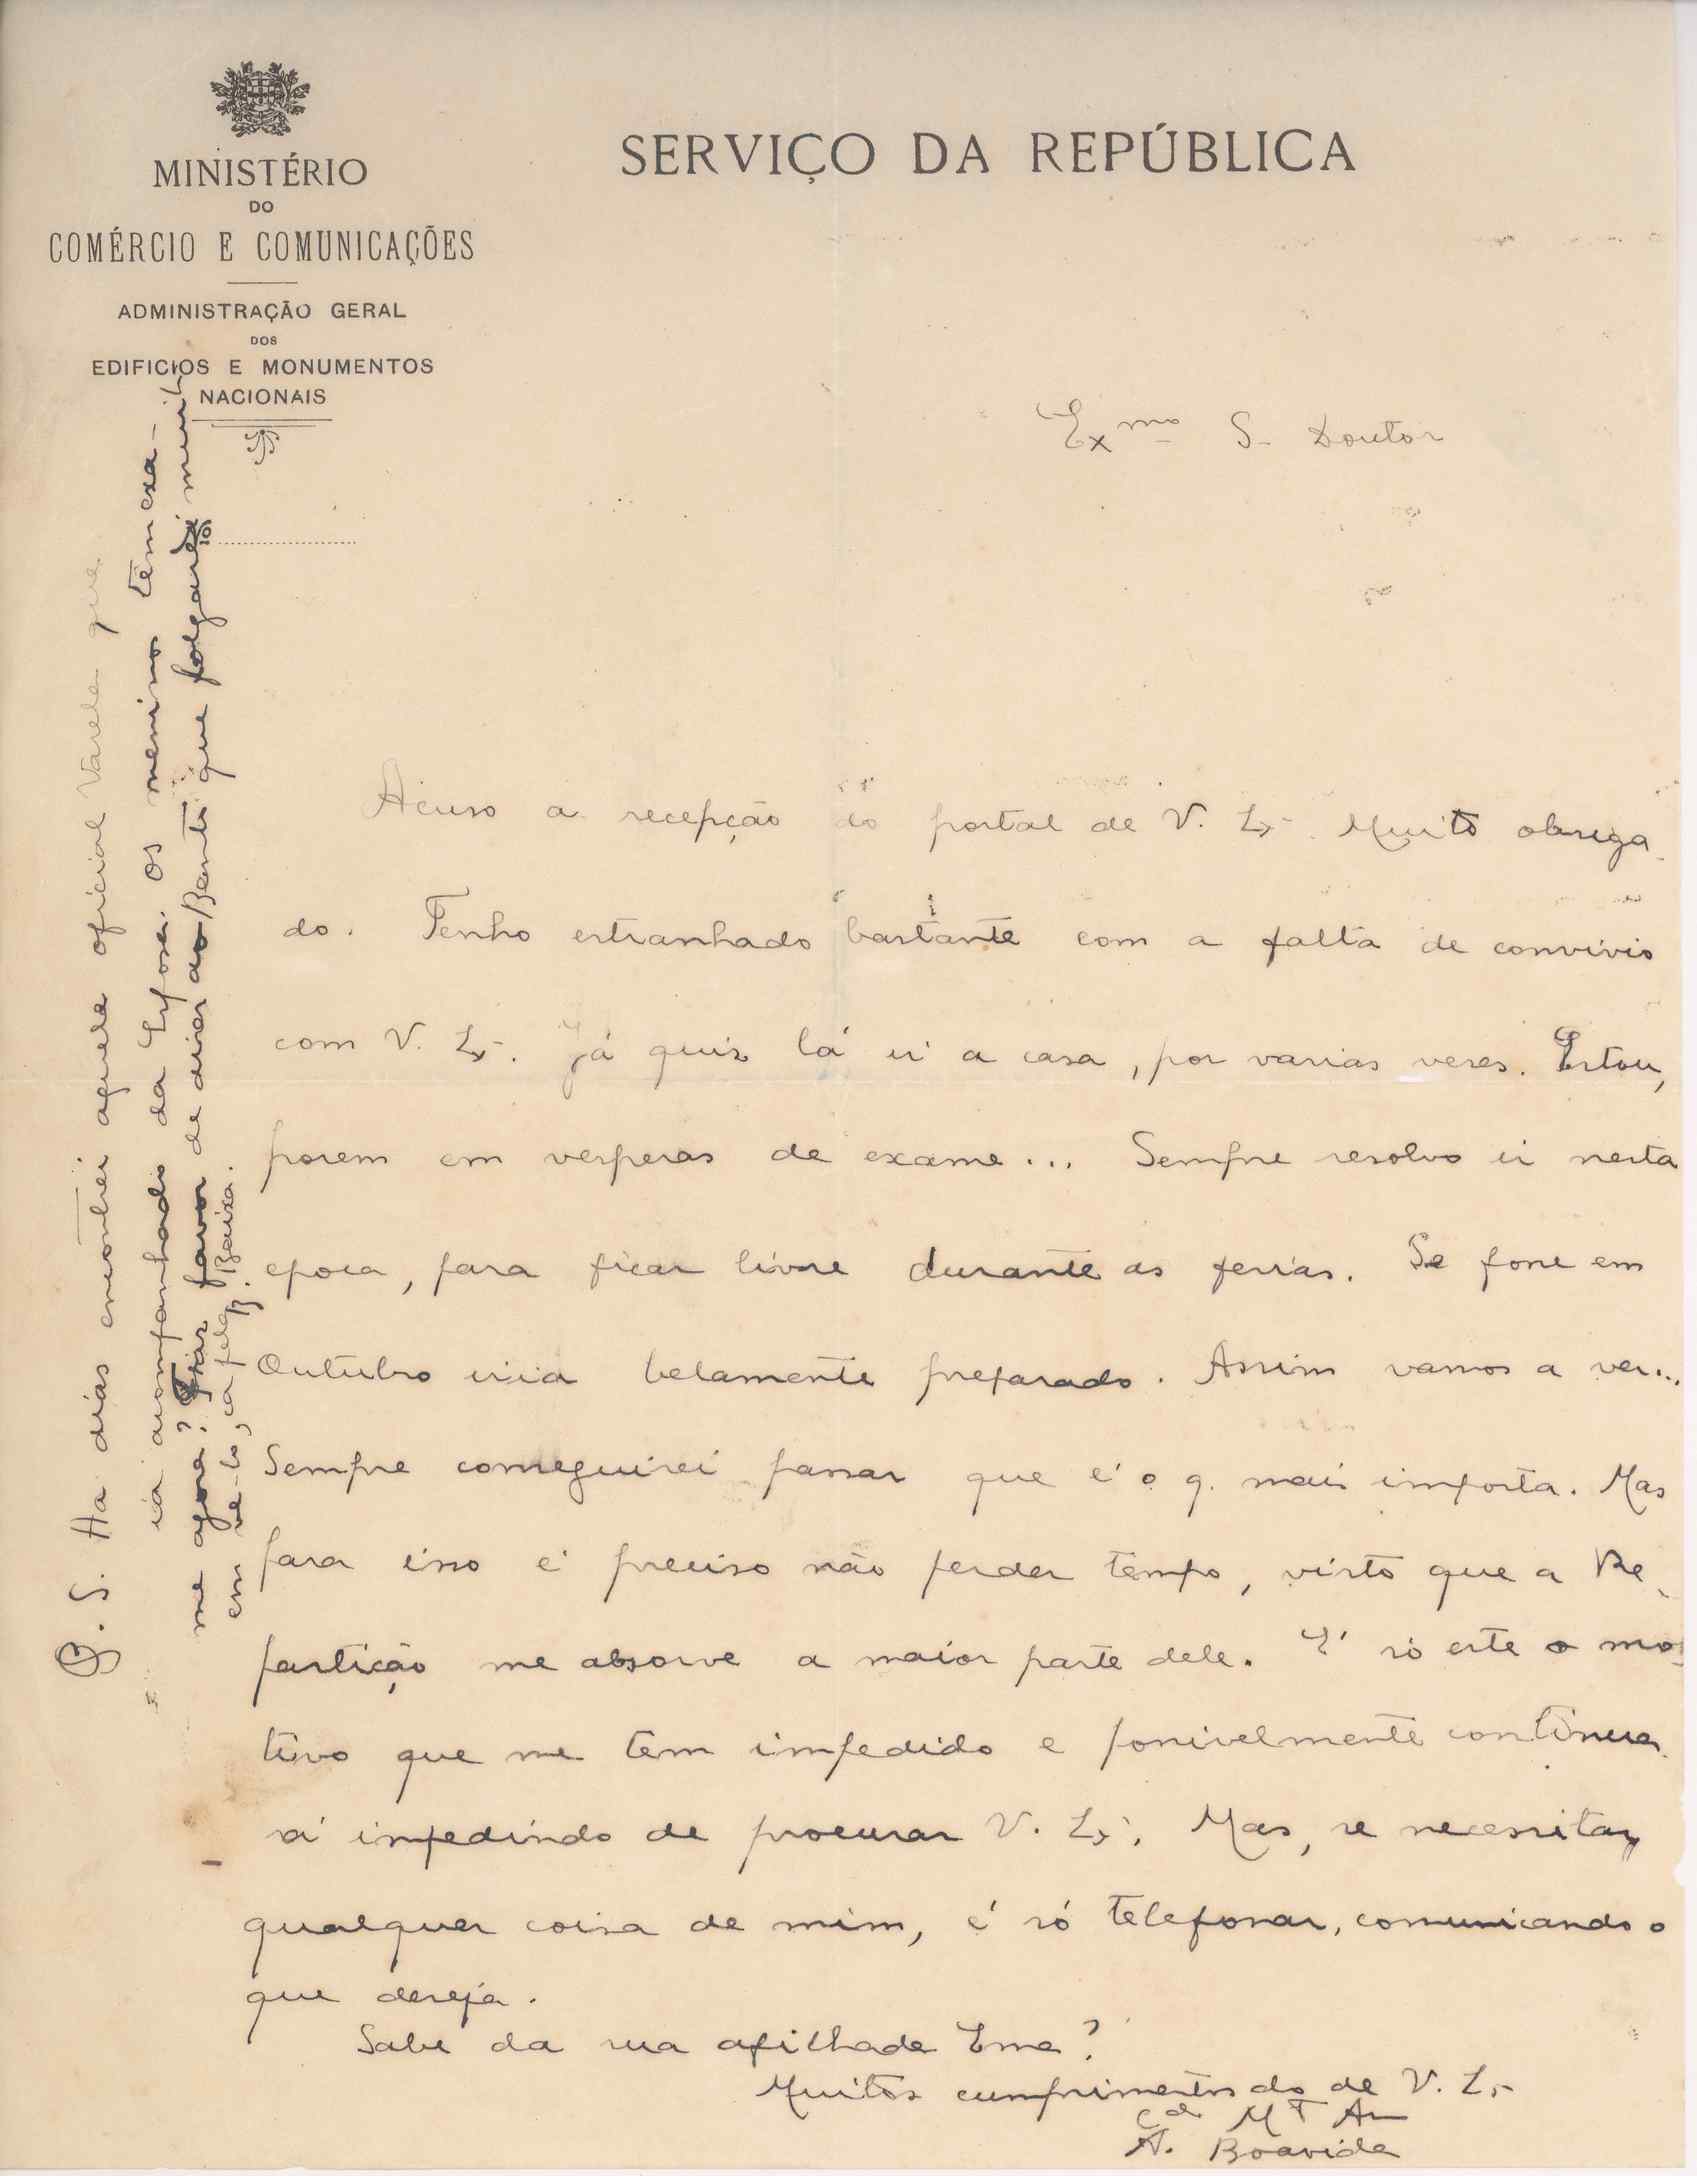 MINISTÉRIO
DO
COMÉRCIO E COMUNICAÇÕES
ADMINISTRAÇÃO GERAL
DOS
EDIFICIOS E MONUMENTOS
NACIONAIS
Nº
SERVIÇO DA REPÚBLICA
Exmo S. Doutor
Acuso a recepção do postal de V. Ex. Muito obriga-
do. Tenho estranhado bastante com a falta de convivio
com V. Ex. Já quis lá ir a casa, por varias vezes. Estou,
porem em vesperas de exame... Sempre resolvo ir nesta
epoca, para ficar livre durante as ferias. Se fosse em
Outubro iria belamente preparado. Assim vamos a ver...
Sempre conseguirei passar que é o q. mais importa. Mas
para isso é preciso não perder tempo, visto que a Re-
partição me absorve a maior parte dele. É só este o mo-
tivo que me tem impedido e possivelmente continua-
rá impedindo de procurar V. Ex. Mas, se necessitar
qualquer coisa de mim, é só telefonar, comunicando o
que deseja.
Sabe da sua afilhada Ema?
Muitos cumprimentos do de V. Ex.
Cdo Mt Am
A. Boavida
P. S. Ha dias encontrei aquele oficial Varela que
ia acompanhado da Esposa. Os meninos têm exa-
me agora? favor de dizer ao Bento que folgarei muito
em vê-lo, cá pela B. Baixa.